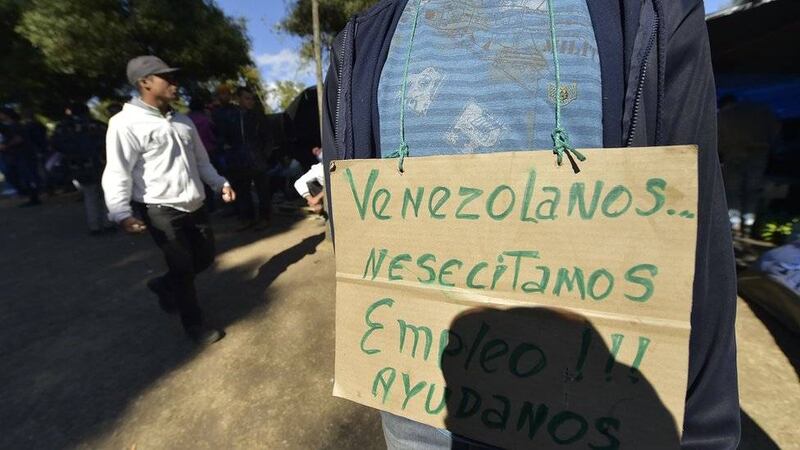 Venezolanos...
NESECITAMOS
Empleo!!!
AYUDANOS